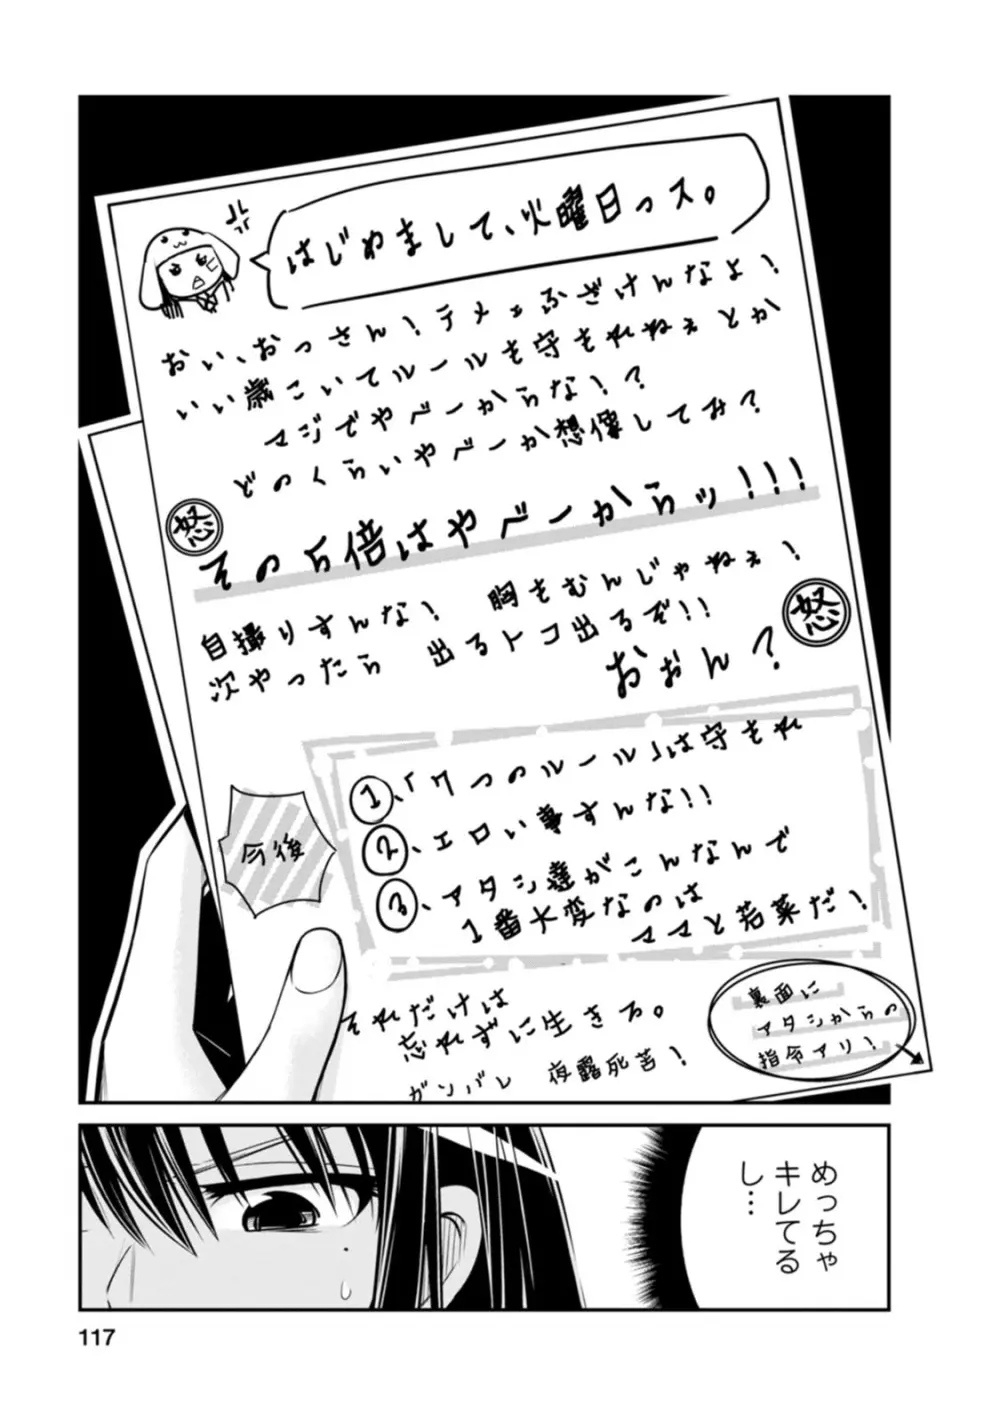 はじめまして、火曜日っス。
おい、おっさん!テメェふざけんなよ!
いい歳こいてルールを守れねぇとか
マジでやべーからな!?
どのくらいやべーか想像してみ?
怒
その5倍はやべーからッ!!!
自撮りすんな! 胸をむんじゃねぇ!
次やったら 出るトコ出るぞ!!
怒
おぉん?
今後
①、「7つのルール」は守れ
②、エロい事すんな!!
③、アタシ達がこんなんで
1番大変なのは
ママと若菜だ!
それだけは
忘れずに生きろ。
ガンバレ 夜露死苦!
裏面に
アタシからの
指令アリ!
めっちゃ
キレてる
し…
117